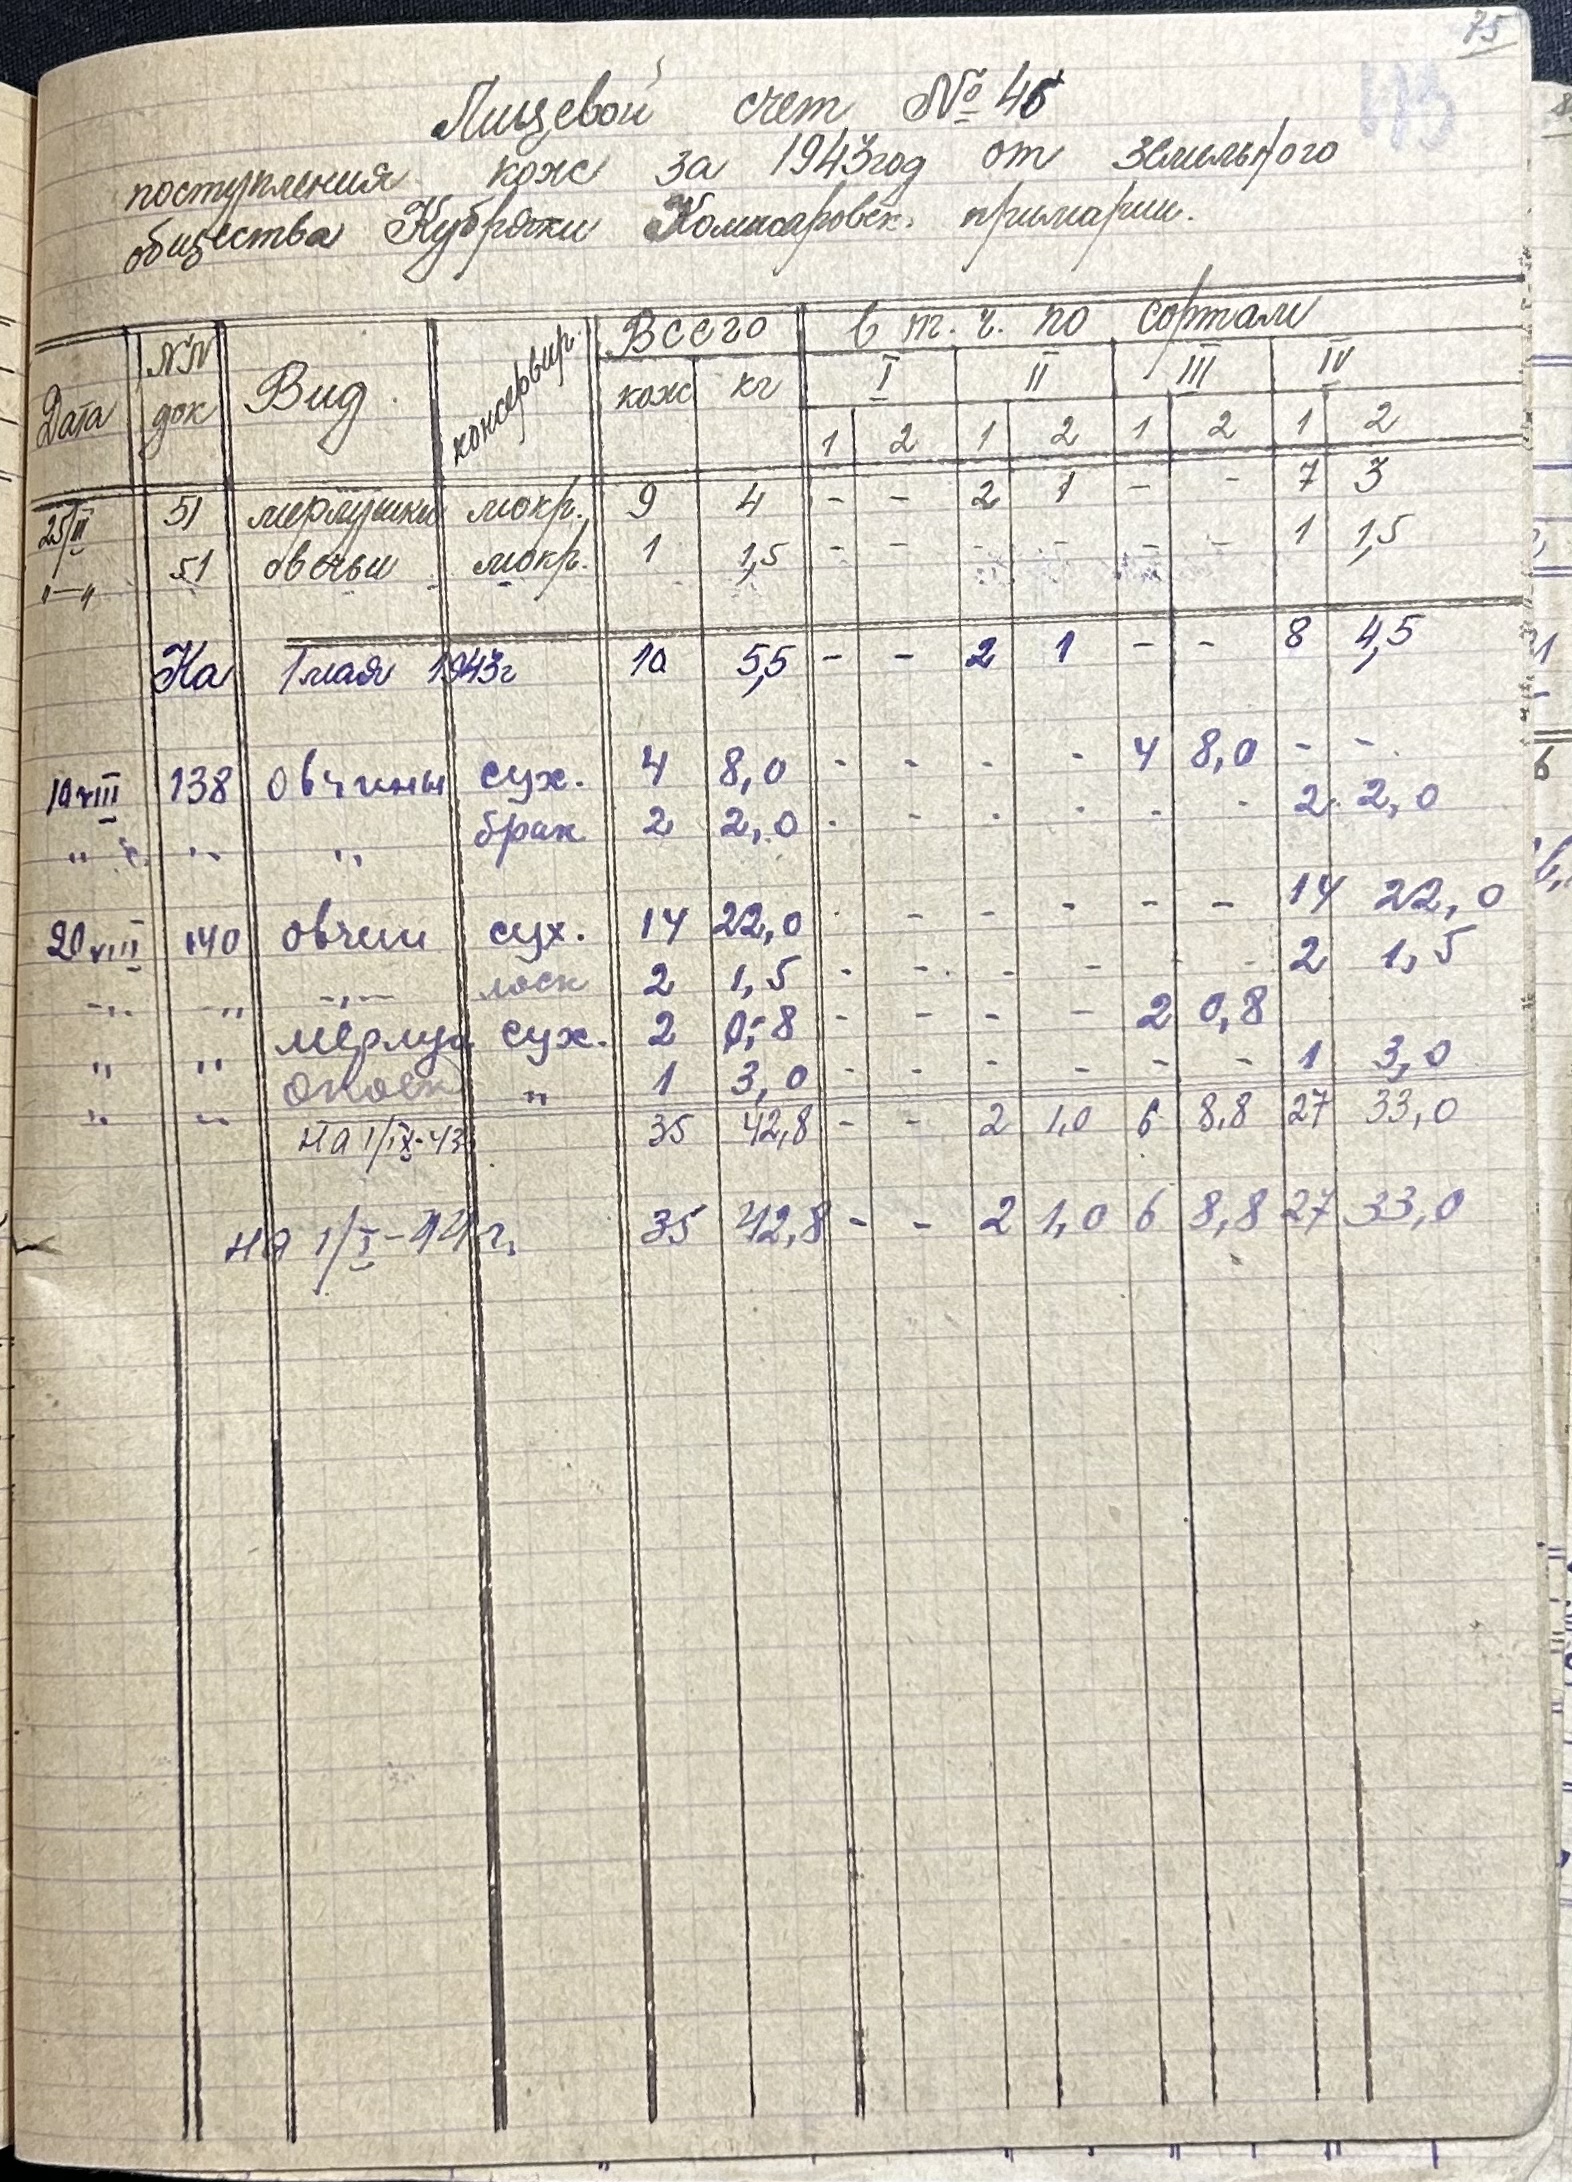 75
113
Лицевой счет № 46
поступления кож за 1943 год от земельного
общества Кубрячки Комисаровск. примарии.
Дата №№ док Вид. консервир. Всего в т. ч. по сортам
кож кг I II III IV
1 2 1 2 1 2 1 2
25/III 51 мерлушки мокр. 9 4 - - 2 1 - - 7 3
"—" 51 овечьи мокр. 1 1,5 - - - - - - 1 1,5
На 1 мая 1943г 10 5,5 - - 2 1 - - 8 4,5
10 VIII 138 овчины сух. 4 8,0 - - - - 4 8,0 - -
" " " брак 2 2,0 - - - - - - 2 2,0
20 VIII 140 овчин сух. 14 22,0 - - - - - - 14 22,0
-"- -"- -"- лоск 2 1,5 - - - - - - 2 1,5
" " мерлуш сух. 2 0,8 - - - - 2 0,8
" " " 1 3,0 - - - - - - 1 3,0
на 1/IX-43 35 42,8 - - 2 1,0 6 8,8 27 33,0
на 1/I-44 г. 35 42,8 - - 2 1,0 6 8,8 27 33,0